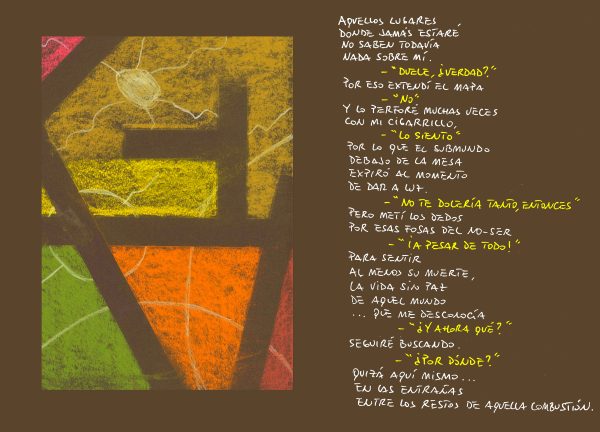 AQUELLOS LUGARES
DONDE JAMÁS ESTARÉ
NO SABEN TODAVÍA
NADA SOBRE MÍ.
- "DUELE, ¿VERDAD?"
POR ESO EXTENDÍ EL MAPA
- "NO"
Y LO PERFORÉ MUCHAS VECES
CON MI CIGARRILLO,
- "LO SIENTO"
POR LO QUE EL SUBMUNDO
DEBAJO DE LA MESA
EXPIRÓ AL MOMENTO
DE DAR A LUZ.
- "NO TE DOLERÍA TANTO, ENTONCES"
PERO METÍ LOS DEDOS
POR ESAS FOSAS DEL NO-SER
- "¡A PESAR DE TODO!"
PARA SENTIR
AL MENOS SU MUERTE,
LA VIDA SIN PAZ
DE AQUEL MUNDO
... QUE ME DESCONOCÍA
- "¿Y AHORA QUÉ?"
SEGUIRÉ BUSCANDO.
- "¿POR DÓNDE?"
QUIZÁ AQUÍ MISMO...
EN LAS ENTRAÑAS
ENTRE LOS RESTOS DE AQUELLA COMBUSTIÓN.